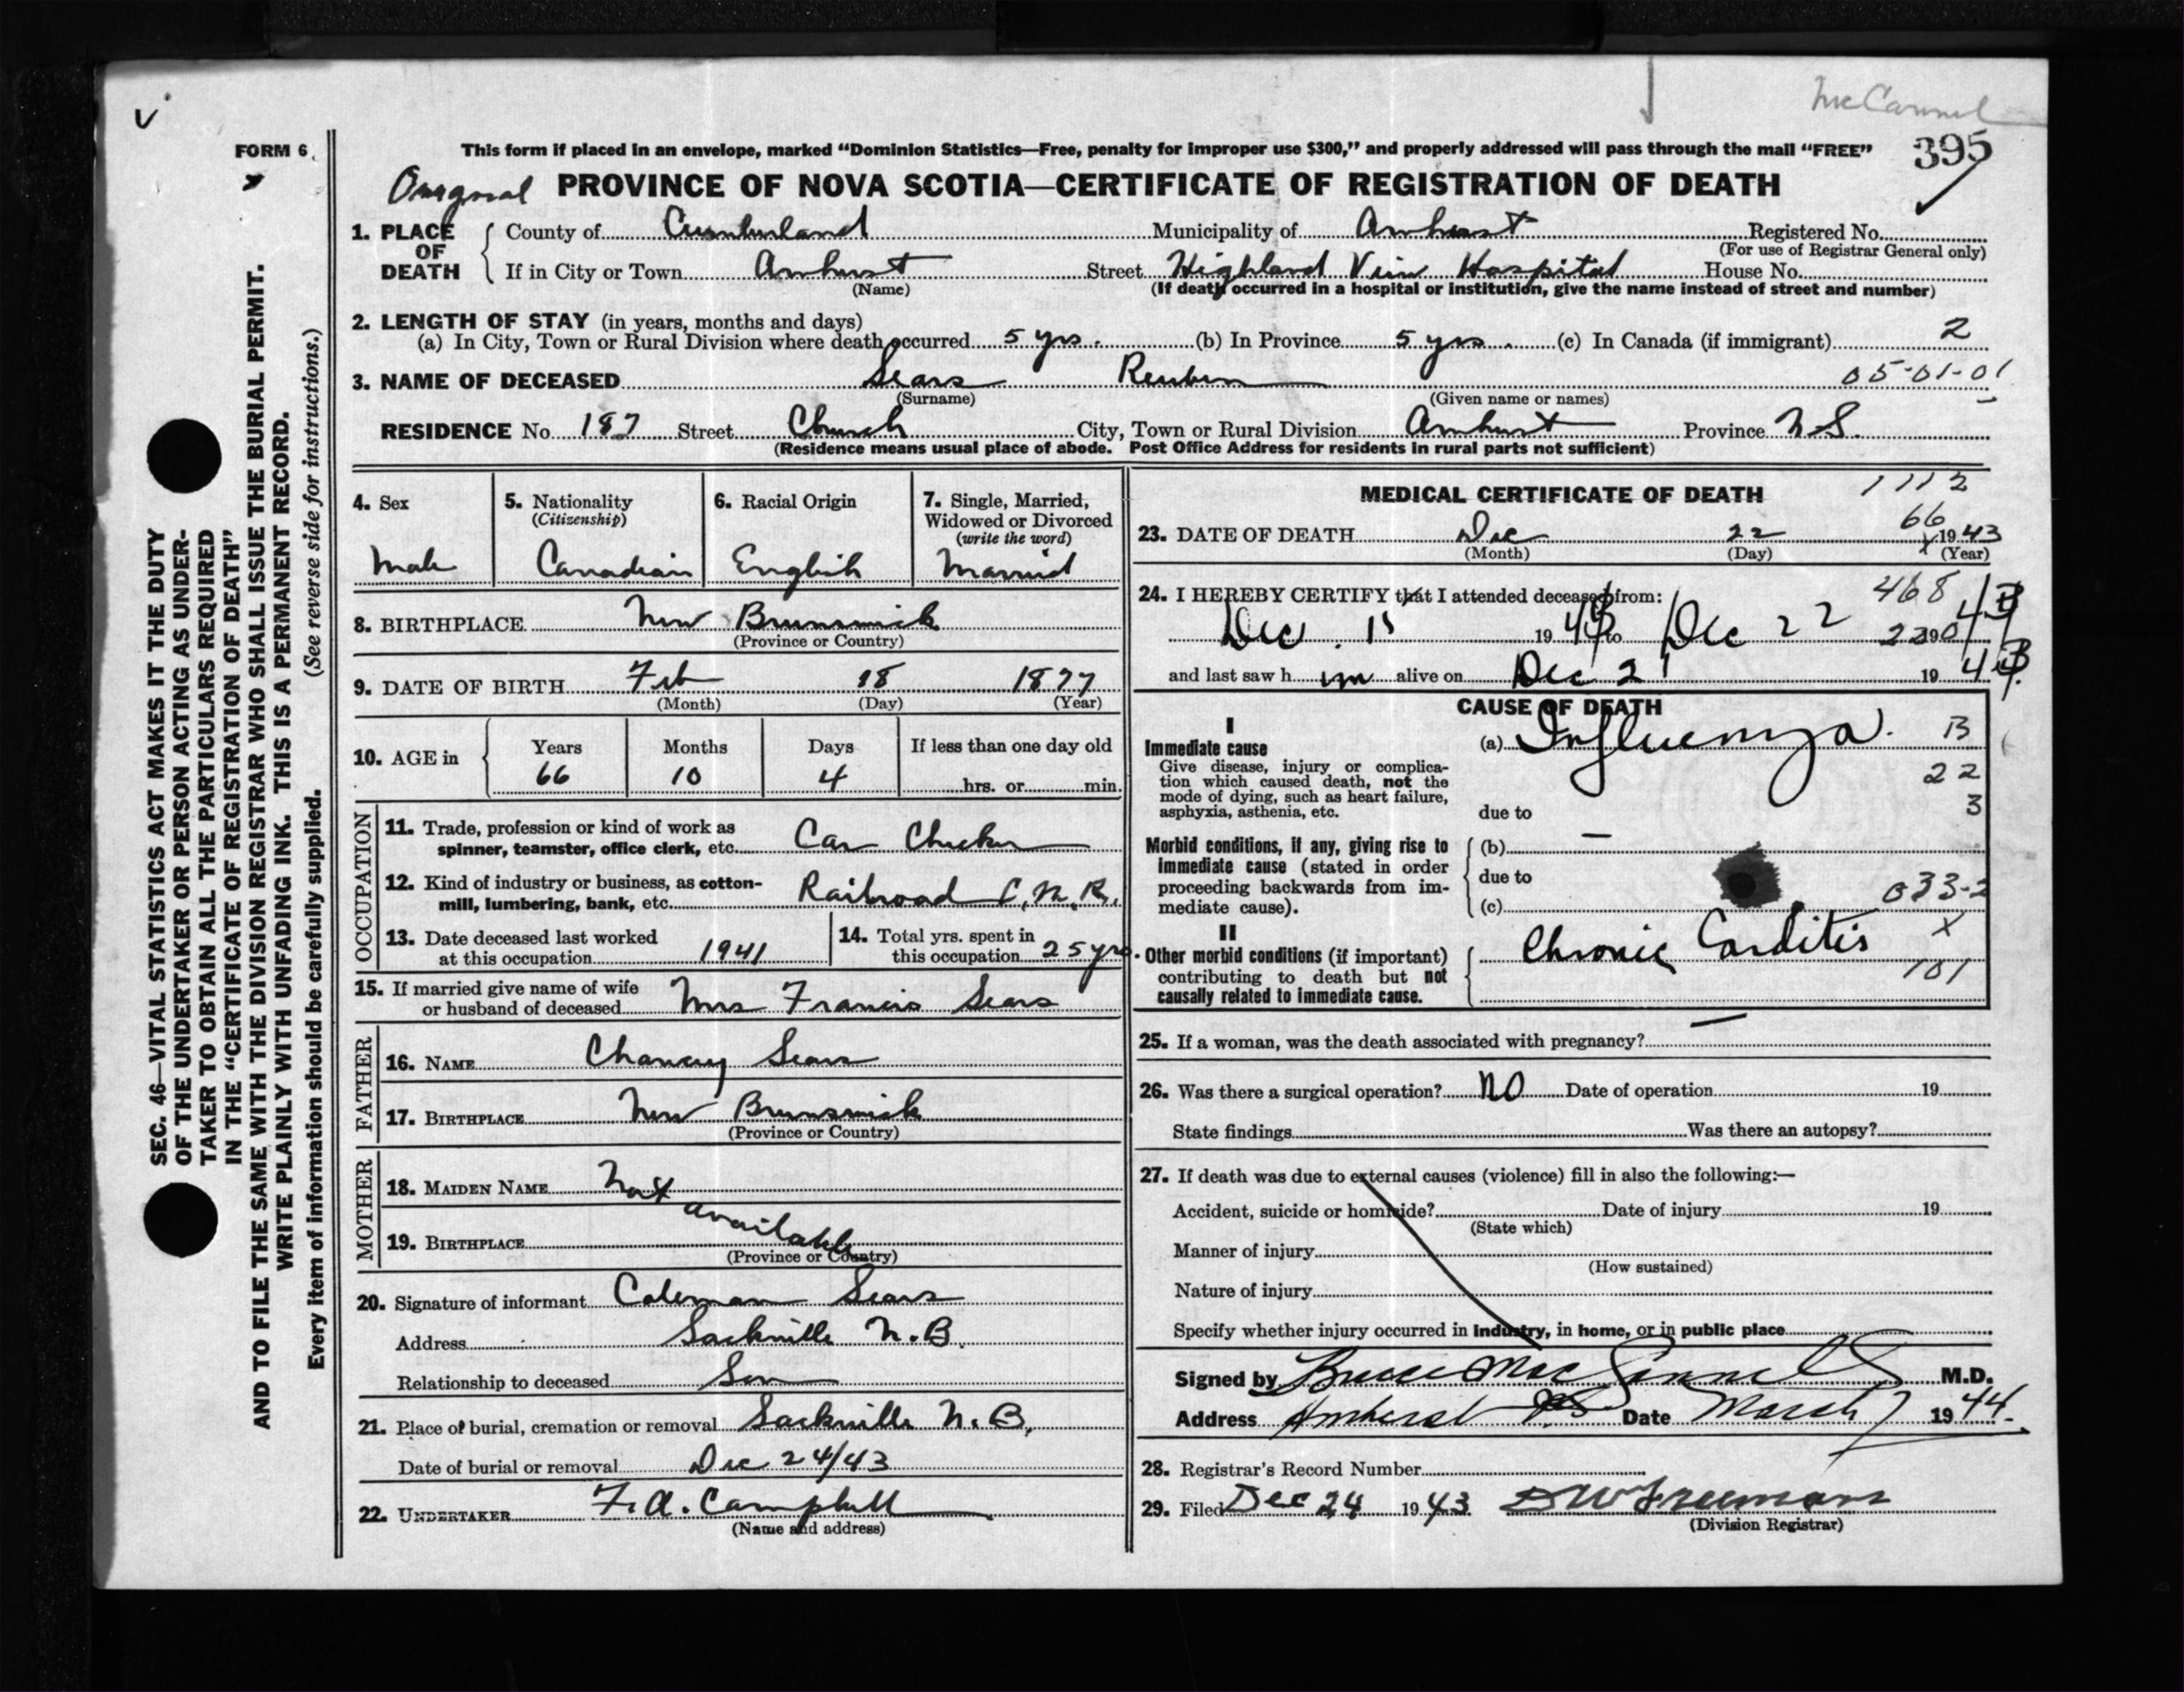 McCannel
V
FORM 6
This form if placed in an envelope, marked “Dominion Statistics—Free, penalty for improper use $300,” and properly addressed will pass through the mail “FREE”
395
Original PROVINCE OF NOVA SCOTIA—CERTIFICATE OF REGISTRATION OF DEATH
1. PLACE OF DEATH
County of Cumberland Municipality of Amherst Registered No.
(For use of Registrar General only)
If in City or Town Amherst Street Highland View Hospital House No.
(Name) (If death occurred in a hospital or institution, give the name instead of street and number)
2. LENGTH OF STAY (in years, months and days)
(a) In City, Town or Rural Division where death occurred 5 yrs. (b) In Province 5 yrs. (c) In Canada (if immigrant) 2
3. NAME OF DECEASED Sears Reuben 05-01-01
(Surname) (Given name or names)
RESIDENCE No. 187 Street Church City, Town or Rural Division Amherst Province N.S.
(Residence means usual place of abode. Post Office Address for residents in rural parts not sufficient)
SEC. 46—VITAL STATISTICS ACT MAKES IT THE DUTY
OF THE UNDERTAKER OR PERSON ACTING AS UNDER-
TAKER TO OBTAIN ALL THE PARTICULARS REQUIRED
IN THE “CERTIFICATE OF REGISTRATION OF DEATH”
AND TO FILE THE SAME WITH THE DIVISION REGISTRAR WHO SHALL ISSUE THE BURIAL PERMIT.
WRITE PLAINLY WITH UNFADING INK. THIS IS A PERMANENT RECORD.
Every item of information should be carefully supplied. (See reverse side for instructions.)
4. Sex
Male
5. Nationality
(Citizenship)
Canadian
6. Racial Origin
English
7. Single, Married,
Widowed or Divorced
(write the word)
Married
8. BIRTHPLACE New Brunswick
(Province or Country)
9. DATE OF BIRTH Feb 18 1877
(Month) (Day) (Year)
10. AGE in
Years Months Days If less than one day old
66 10 4 hrs. or min.
OCCUPATION
11. Trade, profession or kind of work as
spinner, teamster, office clerk, etc. Car Checker
12. Kind of industry or business, as cotton-
mill, lumbering, bank, etc. Railroad C.N.R.
13. Date deceased last worked
at this occupation 1941
14. Total yrs. spent in
this occupation 25 yrs.
15. If married give name of wife
or husband of deceased Mrs Francis Sears
FATHER
16. NAME Chancey Sears
17. BIRTHPLACE New Brunswick
(Province or Country)
MOTHER
18. MAIDEN NAME Not
available
19. BIRTHPLACE
(Province or Country)
20. Signature of informant Coleman Sears
Address Sackville N.B.
Relationship to deceased Son
21. Place of burial, cremation or removal Sackville N.B.
Date of burial or removal Dec 24/43
22. UNDERTAKER F.A. Campbell
(Name and address)
MEDICAL CERTIFICATE OF DEATH 1112
66
23. DATE OF DEATH Dec 22 1943
(Month) (Day) X (Year)
24. I HEREBY CERTIFY that I attended deceased from: 468
Dec. 15 19 43 to Dec 22 43
and last saw h im alive on Dec 21 19 43
CAUSE OF DEATH
I
Immediate cause
Give disease, injury or complica-
tion which caused death, not the
mode of dying, such as heart failure,
asphyxia, asthenia, etc.
(a) Influenza. B
22
3
due to
Morbid conditions, if any, giving rise to
immediate cause (stated in order
proceeding backwards from im-
mediate cause).
(b) —
due to
(c) 033-2
II
Other morbid conditions (if important)
contributing to death but not
causally related to immediate cause.
Chronic Carditis X
101
25. If a woman, was the death associated with pregnancy? —
26. Was there a surgical operation? NO Date of operation 19
State findings Was there an autopsy?
27. If death was due to external causes (violence) fill in also the following:—
Accident, suicide or homicide? Date of injury 19
(State which)
Manner of injury
(How sustained)
Nature of injury
Specify whether injury occurred in industry, in home, or in public place
Signed by Bruce M.D.
Address Amherst NS Date March 7 1944.
28. Registrar's Record Number
29. Filed Dec 24 1943 DW Freeman
(Division Registrar)